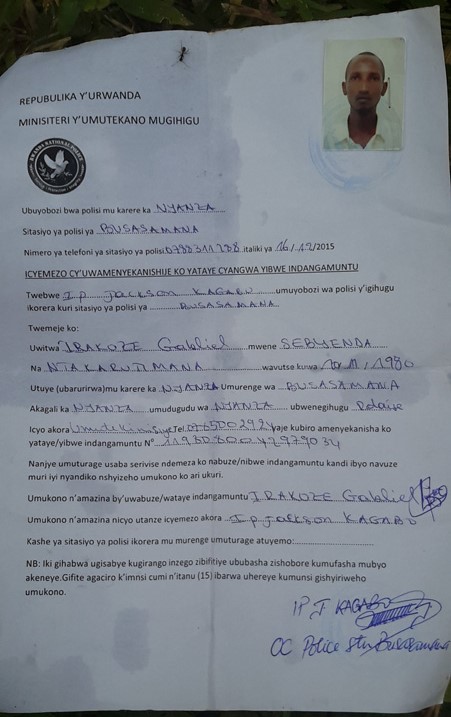 REPUBULIKA Y'URWANDA
MINISITERI Y'UMUTEKANO MUGIHIGU
RWANDA NATIONAL POLICE
Ubuyobozi bwa polisi mu karere ka NYANZA
Sitasiyo ya polisi ya BUSASAMANA
Nimero ya telefoni ya sitasiyo ya polisi 0788311238 .italiki ya 16/12/2015
ICYEMEZO CY'UWAMENYEKANISHIJE KO YATAYE CYANGWA YIBWE INDANGAMUNTU
Twebwe I.p Jackson KAGABO umuyobozi wa polisi y'igihugu
ikorera kuri sitasiyo ya polisi ya BUSASAMANA
Twemeje ko:
Uwitwa IRAKOZE Gabliel mwene SEBYENDA
Na NTAKARUTIMANA wavutse kuwa 1980
Utuye (ubarurirwa)mu karere ka NYANZA Umurenge wa BUSASAMANA
Akagali ka NYANZA umudugudu wa NYANZA ubwenegihugu
Icyo akora Tel. yaje kubiro amenyekanisha ko
yataye/yibwe indangamuntu N°
Nanjye umuturage usaba serivise ndemeza ko nabuze/nibwe indangamuntu kandi ibyo navuze
muri iyi nyandiko nshyizeho umukono ko ari ukuri.
Umukono n'amazina by'uwabuze/wataye indangamuntu IRAKOZE Gabliel
Umukono n'amazina nicyo utanze icyemezo akora I.p Jackson KAGABO
Kashe ya sitasiyo ya polisi ikorera mu murenge umuturage atuyemo:
NB: Iki gihabwa ugisabye kugirango inzego zibifitiye ububasha zishobore kumufasha mubyo
akeneye.Gifite agaciro k'imnsi cumi n'itanu (15) ibarwa uhereye kumunsi gishyiriweho
umukono.
IP J KAGABO
OC Police Stn Busasamana